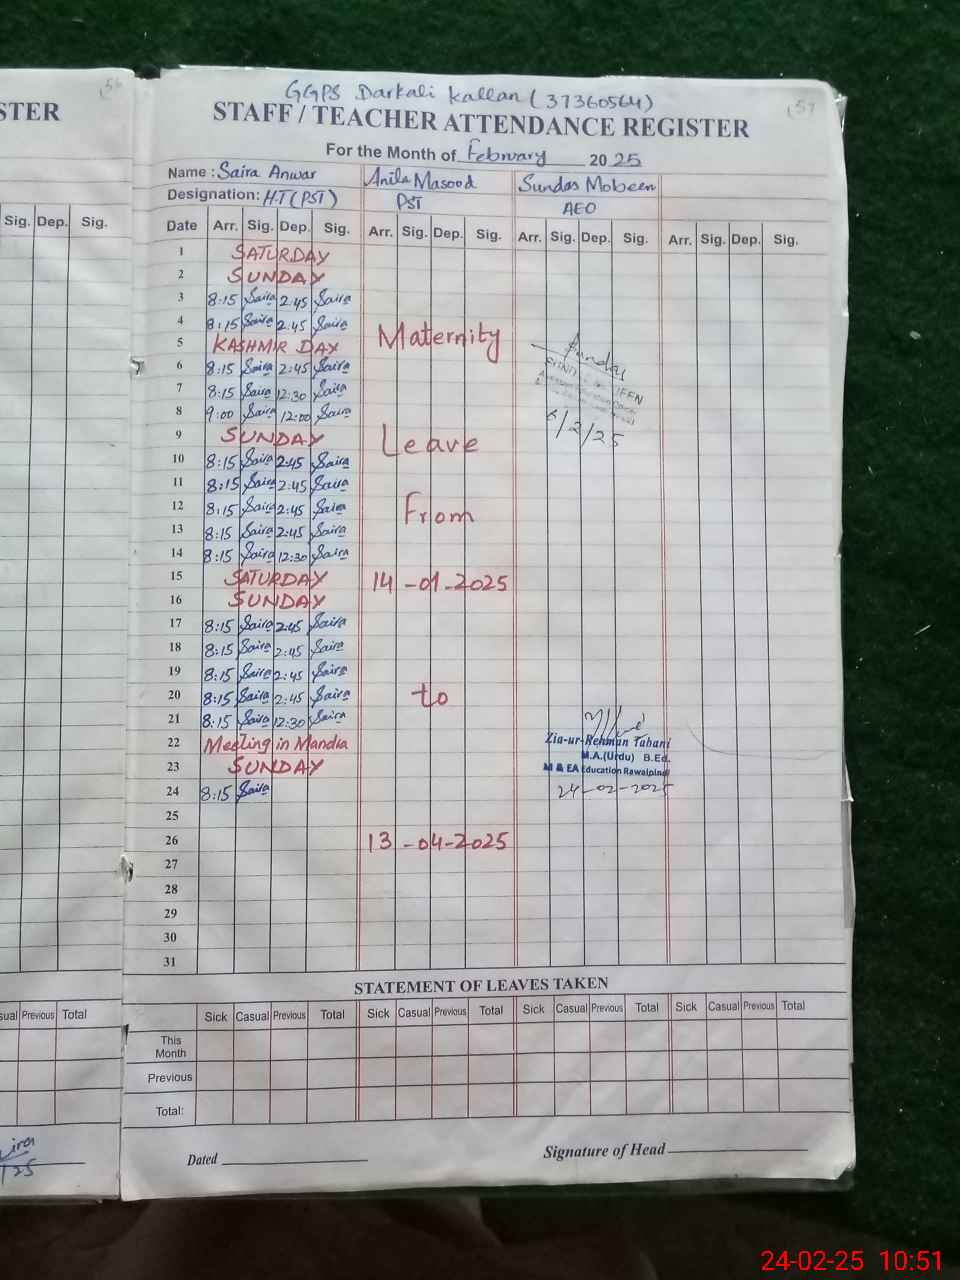 56
STER
Sig. Dep. Sig.
sual Previous Total
57
GGPS Darkali Kallan (37360564)
STAFF / TEACHER ATTENDANCE REGISTER
For the Month of February 2025
Name : Saira Anwar Anila Masood Sundas Mobeen
Designation: H.T (PST) PST AEO
Date Arr. Sig. Dep. Sig. Arr. Sig. Dep. Sig. Arr. Sig. Dep. Sig. Arr. Sig. Dep. Sig.
1 SATURDAY
2 SUNDAY
3 8:15 Saira 2:45 Saira
4 8:15 Saira 2:45 Saira
5 KASHMIR DAY Maternity Sundas
6 8:15 Saira 2:45 Saira
7 8:15 Saira 12:30 Saira
8 9:00 Saira 12:00 Saira 6/2/25
9 SUNDAY Leave
10 8:15 Saira 2:45 Saira
11 8:15 Saira 2:45 Saira
12 8:15 Saira 2:45 Saira From
13 8:15 Saira 2:45 Saira
14 8:15 Saira 12:30 Saira
15 SATURDAY 14-01-2025
16 SUNDAY
17 8:15 Saira 2:45 Saira
18 8:15 Saira 2:45 Saira
19 8:15 Saira 2:45 Saira
20 8:15 Saira 2:45 Saira to
21 8:15 Saira 12:30 Saira
22 Meeting in Mandra Zia-ur-Rehman Tabani
M.A.(Urdu) B.Ed.
23 SUNDAY M & EA Education Rawalpindi
24 8:15 Saira 24-02-2025
25
26 13-04-2025
27
28
29
30
31
STATEMENT OF LEAVES TAKEN
Sick Casual Previous Total Sick Casual Previous Total Sick Casual Previous Total Sick Casual Previous Total
This Month
Previous
Total:
Dated Signature of Head
24-02-25 10:51